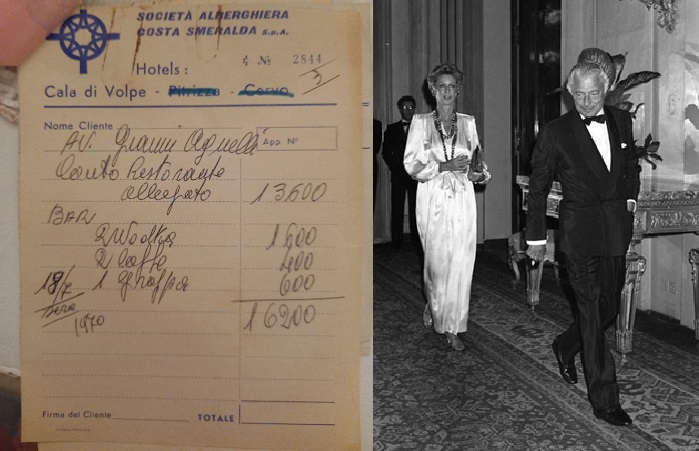 SOCIETÀ ALBERGHIERA
COSTA SMERALDA S.p.A.
Nº 2844
3
Hotels:
Cala di Volpe - Pitrizza - Cervo
Nome Cliente
App. Nº
Av. Gianni Agnelli
Conto Ristorante
allegato 13.600
BAR
2 Wodka 1600
2 Caffe 400
1 grappa 600
18/7
sera
1970
16200
Firma del Cliente
TOTALE